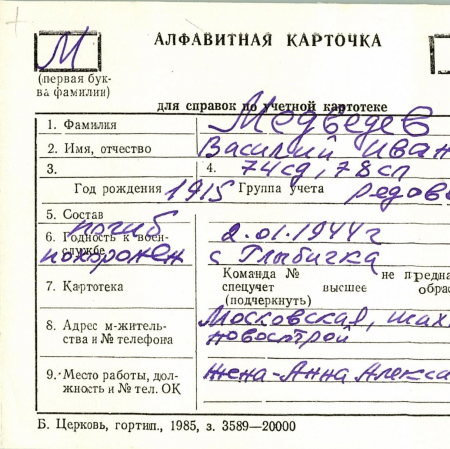 М
АЛФАВИТНАЯ КАРТОЧКА
(первая бук-
ва фамилии)
для справок по учетной картотеке
1. Фамилия Медведев
2. Имя, отчество Василий Иван
3. 4. 74сд, 78сп
Год рождения 1915 Группа учета рядово
5. Состав
погиб
6. Годность к воен- 2.01.1944г
службе
похоронен с Глыбичка
Команда № не предна
7. Картотека спецучет высшее обра
(подчеркнуть)
8. Адрес м-житель- Московская, шах
ства и № телефона новострой
9. Место работы, дол- жена-Анна Алекса
жность и № тел. ОК
Б. Церковь, гортип., 1985, з. 3589—20000